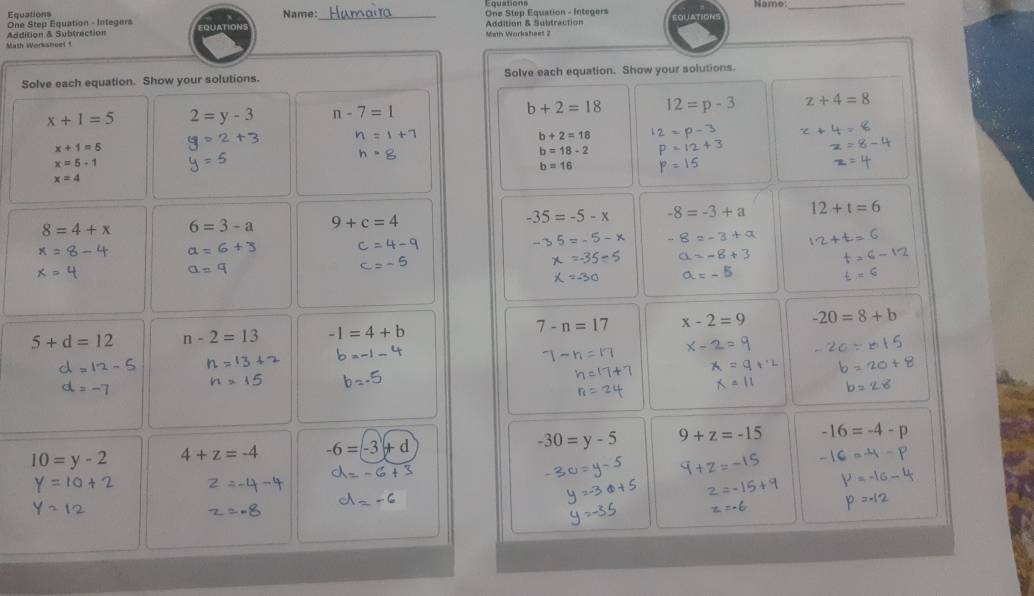 Equations
One Step Equation - Integers
Addition & Subtraction
Math Worksheet 1
EQUATIONS
Name: Humaira
Solve each equation. Show your solutions.
x + 1 = 5
x + 1 = 5
x = 5 - 1
x = 4
2 = y - 3
y = 2 + 3
y = 5
n - 7 = 1
n = 1 + 7
n = 8
8 = 4 + x
x = 8 - 4
x = 4
6 = 3 - a
a = 6 + 3
a = 9
9 + c = 4
c = 4 - 9
c = - 5
5 + d = 12
d = 12 - 5
d = - 7
n - 2 = 13
n = 13 + 2
n = 15
-1 = 4 + b
b = -1 - 4
b = -5
10 = y - 2
y = 10 + 2
y = 12
4 + z = -4
z = -4 - 4
z = -8
-6 = -3 + d
d = - 6 + 3
d = - 6
Equations
One Step Equation - Integers
Addition & Subtraction
Math Worksheet 2
EQUATIONS
Name:
Solve each equation. Show your solutions.
b + 2 = 18
b + 2 = 18
b = 18 - 2
b = 16
12 = p - 3
12 = p - 3
p = 12 + 3
p = 15
z + 4 = 8
z + 4 = 8
z = 8 - 4
z = 4
-35 = -5 - x
-35 = -5 - x
x = -30
-8 = -3 + a
-8 = -3 + a
a = -8 + 3
a = - 5
12 + t = 6
12 + t = 6
t = 6 - 12
t = 6
7 - n = 17
7 - n = 17
n = 17 + 7
n = 24
x - 2 = 9
x - 2 = 9
x = 9 + 2
x = 11
-20 = 8 + b
b = 20 + 8
b = 28
-30 = y - 5
-30 = y - 5
y = -30 + 5
y = -35
9 + z = -15
9 + z = -15
z = -15 + 9
z = -6
-16 = -4 - p
-16 = -4 - p
p = -16 - 4
p = -12